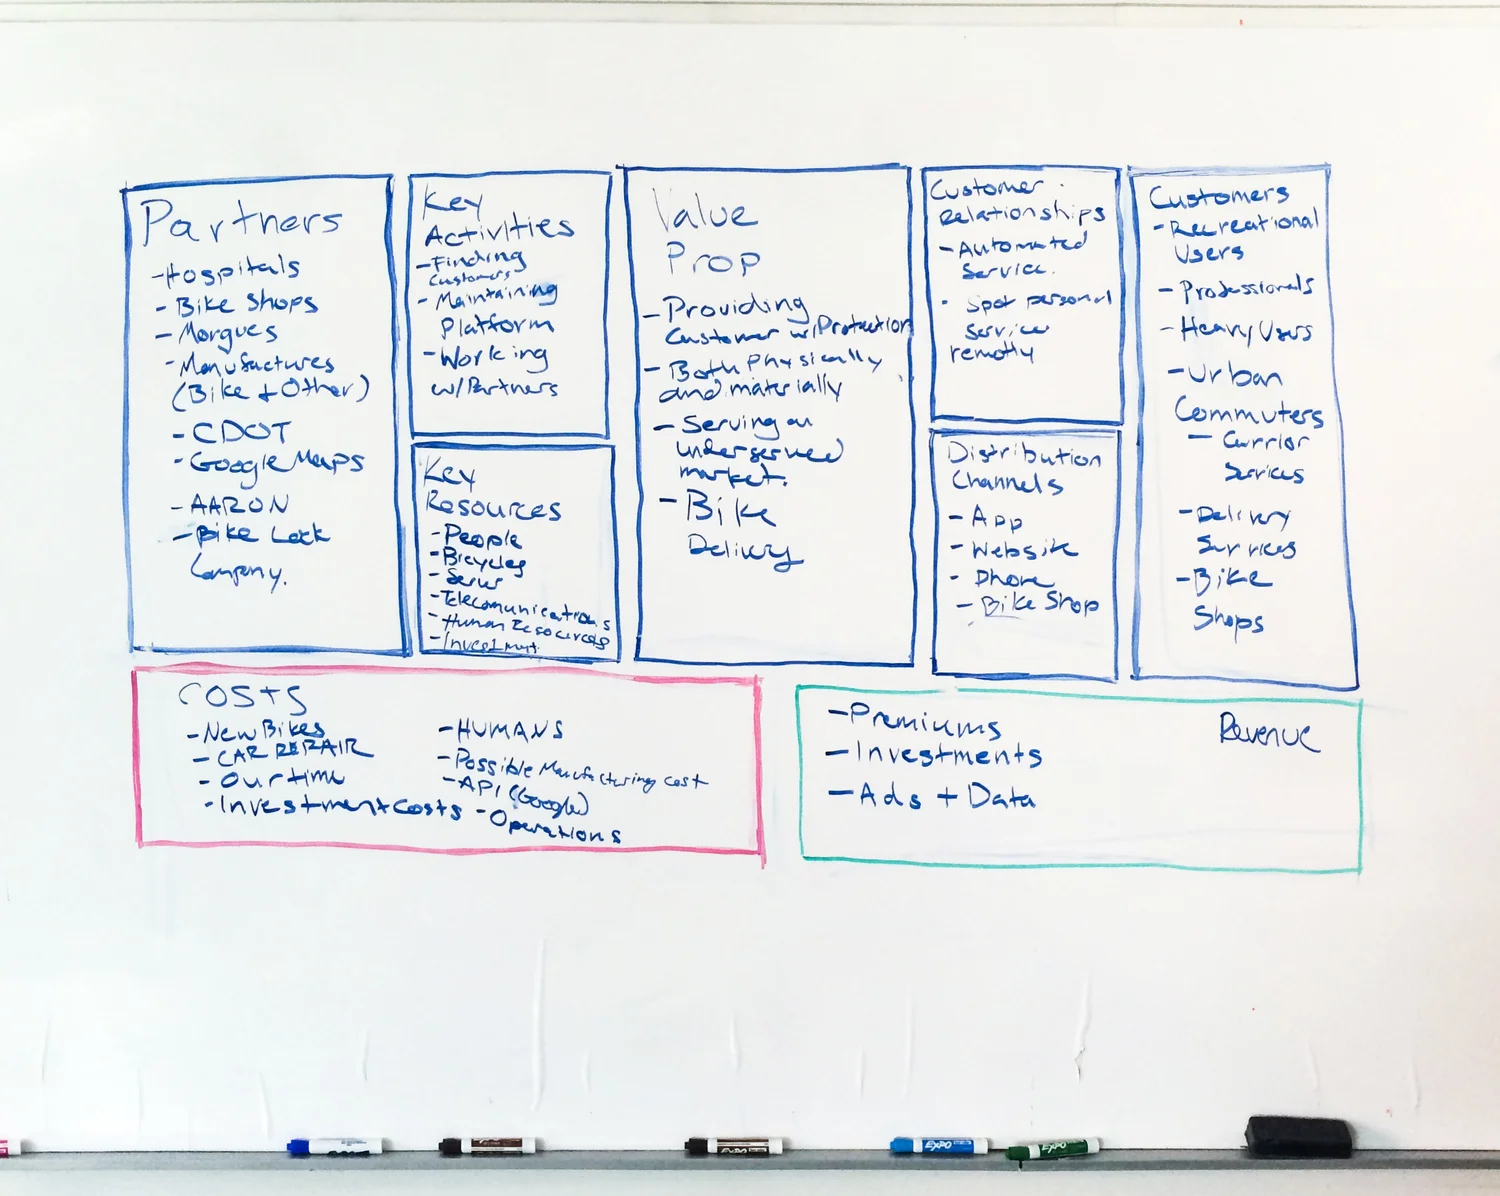 Partners
-Hospitals
- Bike Shops
- Morgues
- Manufactures
(Bike + Other)
- CDOT
- Google Maps
- AARON
- Bike Lock
Company.
Key
Activities
-Finding
Customers
- Maintaining
Platform
- Working
w/Partners
Key
Resources
- People
- Bicycles
- Server
- Telecomunications
- Human Resources
- Investment
Value
Prop
- Providing
Customer w/Protection
- Both Physically
and materially
- Serving an
underserved
market.
- Bike
Delivery
Customer
relationships
- Automated
Service.
- Spot personal
Service
remotly
Distribution
Channels
- App
- Website
- Phone
- Bike Shop
Customers
- Recreational
Users
- Professionals
- Heavy Users
- Urban
Commuters
- Currior
Services
- Delivery
Services
- Bike
Shops
COSTS
- New Bikes
- CAR REPAIR
- Our time
- Investment costs
- HUMANS
- Possible Manufacturing cost
- API (Google)
- Operations
Revenue
- Premiums
- Investments
- Ads + Data
EXPO
EXPO
EXPO